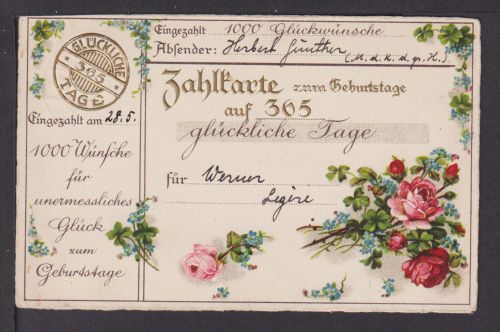 GLÜCKLICHE
365
TAGE
Eingezahlt am 28.5.
1000 Wünsche
für
unermessliches
Glück
zum
Geburtstage
Eingezahlt 1000 Glückwünsche
Absender: Herbert Günther (M.d.K.d.gr.H.)
Zahlkarte zum Geburtstage
auf 365
glückliche Tage
für Werner
Legère